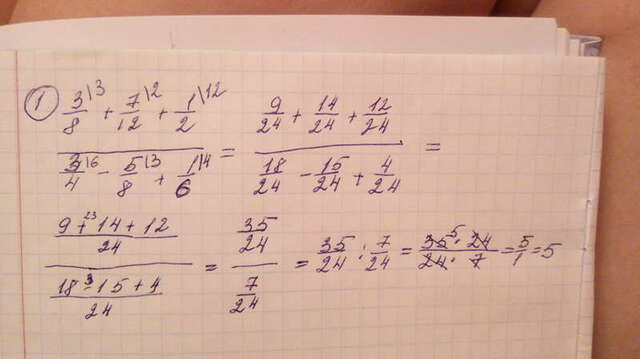 ① 3\3/8 + 7\2/12 + 1\12/2 / 3\6/4 - 5\3/8 + 1\4/6 = 9/24 + 14/24 + 12/24 / 18/24 - 15/24 + 4/24 =
9 + 23 14 + 12/24 / 18 - 3 15 + 4/24 = 35/24 / 7/24 = 35/24 : 7/24 = 35 5 · 24/24 · 7 = 5/1 = 5